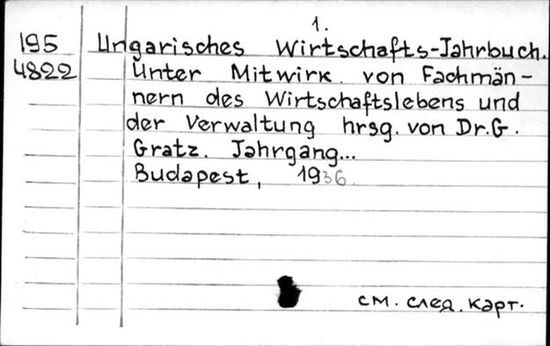 1.
195 Ungarisches Wirtschafts-Jahrbuch.
4822 Unter Mitwirk. von Fachmän-
nern des Wirtschaftslebens und
der Verwaltung hrsg. von Dr. G.
Gratz. Jahrgang...
Budapest, 1936
см. след. карт.